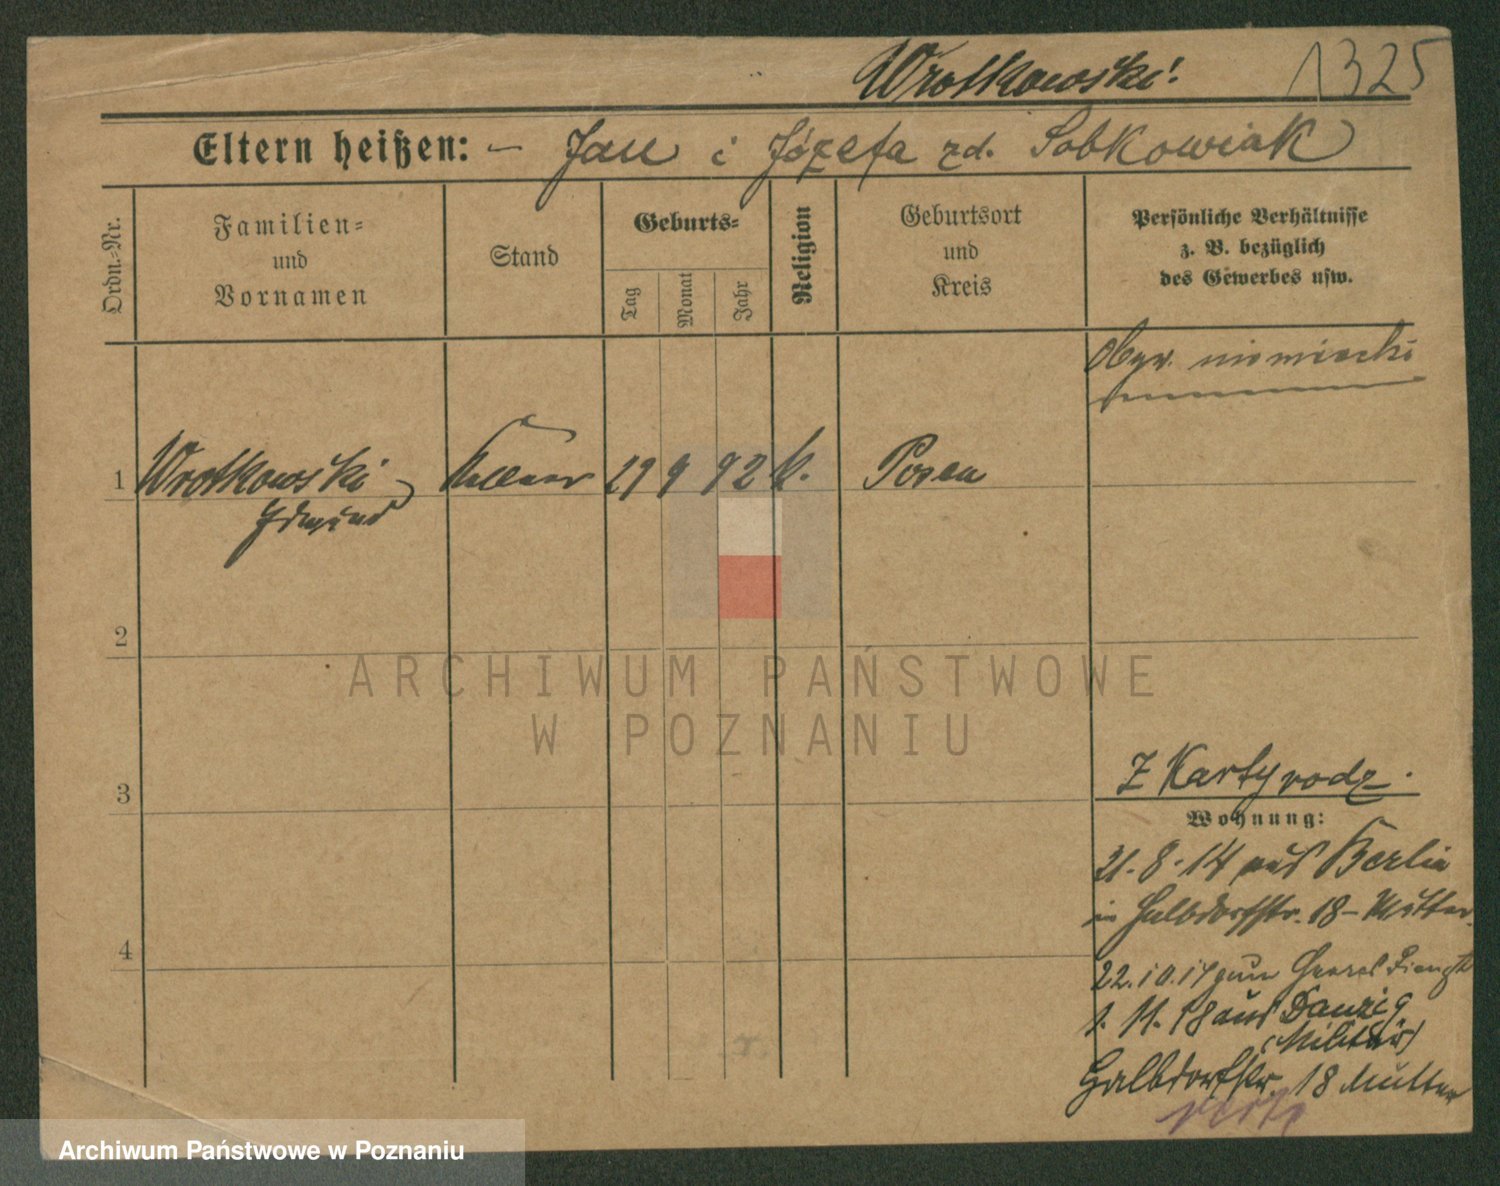 Wrotkowski
1325
Eltern heißen: - Jan i Józefa zd. Sobkowiak
Ordn.-Nr.
Familien- und Vornamen
Stand
Geburts-
Tag
Monat
Jahr
Religion
Geburtsort und Kreis
Persönliche Verhältnisse
z. B. bezüglich
des Gewerbes usw.
Obyw. niemiecki
1 Wrotkowski Kellner 29 9 92 k. Posen
Edmund
2
ARCHIWUM PAŃSTWOWE
W POZNANIU
3
Z Karty rodz.
Wohnung:
31.8.14 aus Berlin
in Halbdorfstr. 18 - Mutter
4
22.10.17 zum Heeresdienst
1. 11. 18 aus Danzig
(Militär)
Halbdorfstr. 18 Mutter
Archiwum Państwowe w Poznaniu